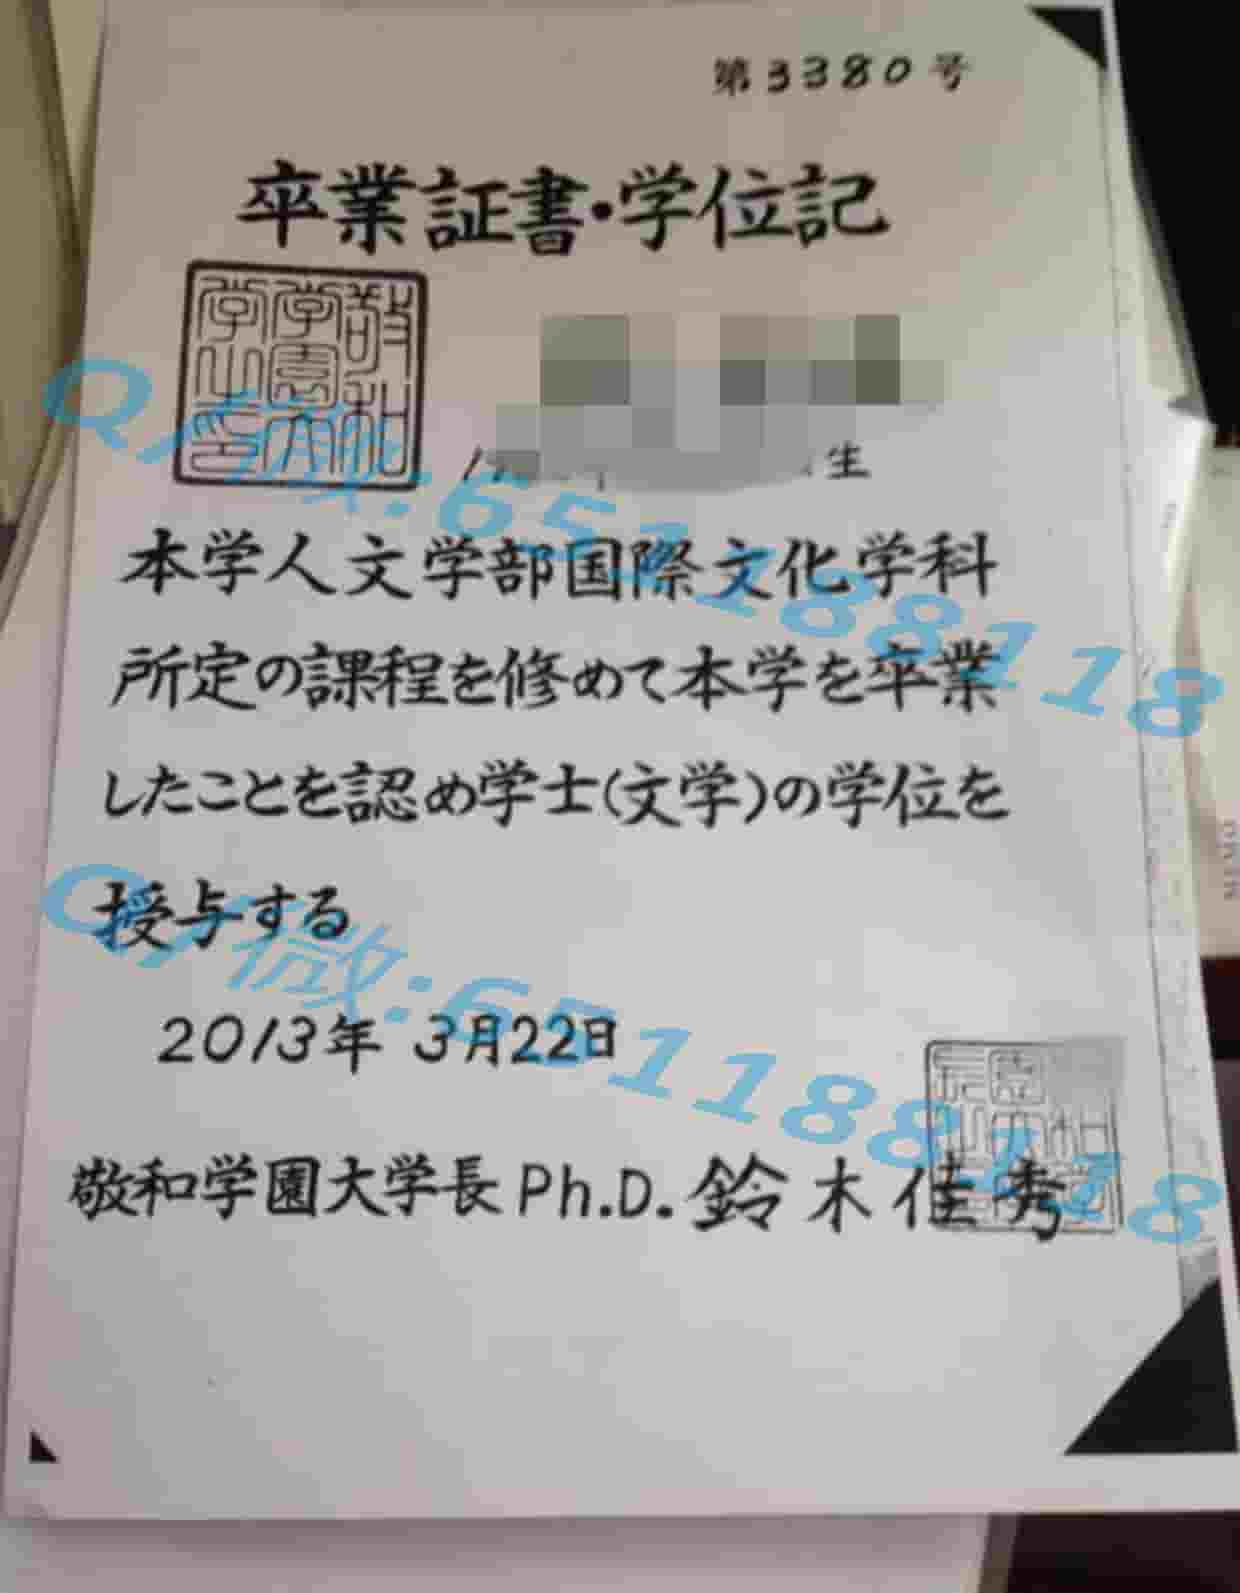 第3380号
卒業証書・学位記
敬和
学園大
学之印
生
本学人文学部国際文化学科
所定の課程を修めて本学を卒業
したことを認め学士(文学)の学位を
授与する
2013年 3月22日
敬和学園大学長 Ph.D. 鈴木佳秀
Q/微:65118 8118
Q/微:65118 8118